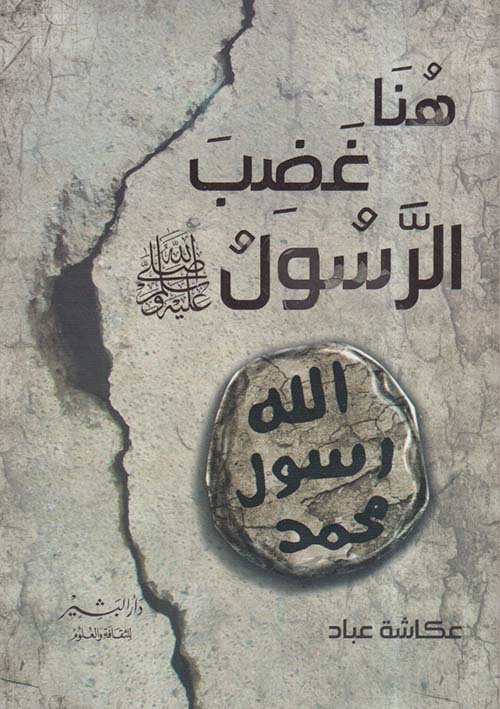 هُنَا
غَضِبَ
الرَّسُولُ
صلى الله عليه وسلم
الله
رسول
محمد
عكاشة عباد
دار البشير
للثقافة والعلوم